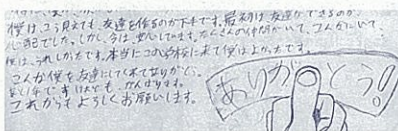 僕は、こう見えても、友達を作るのが下手です。最初は友達ができるのか、
心配でした。しかし今は安心しています。たくさんの仲間がいて、コんがいて
僕は、うれしかったです。本当にこの学校に来て僕はよかったです。
コんが僕を友達にしてくれてありがとう。
あと1年ですけども、がんばります。
これからもよろしくお願いします。
ありがとう!